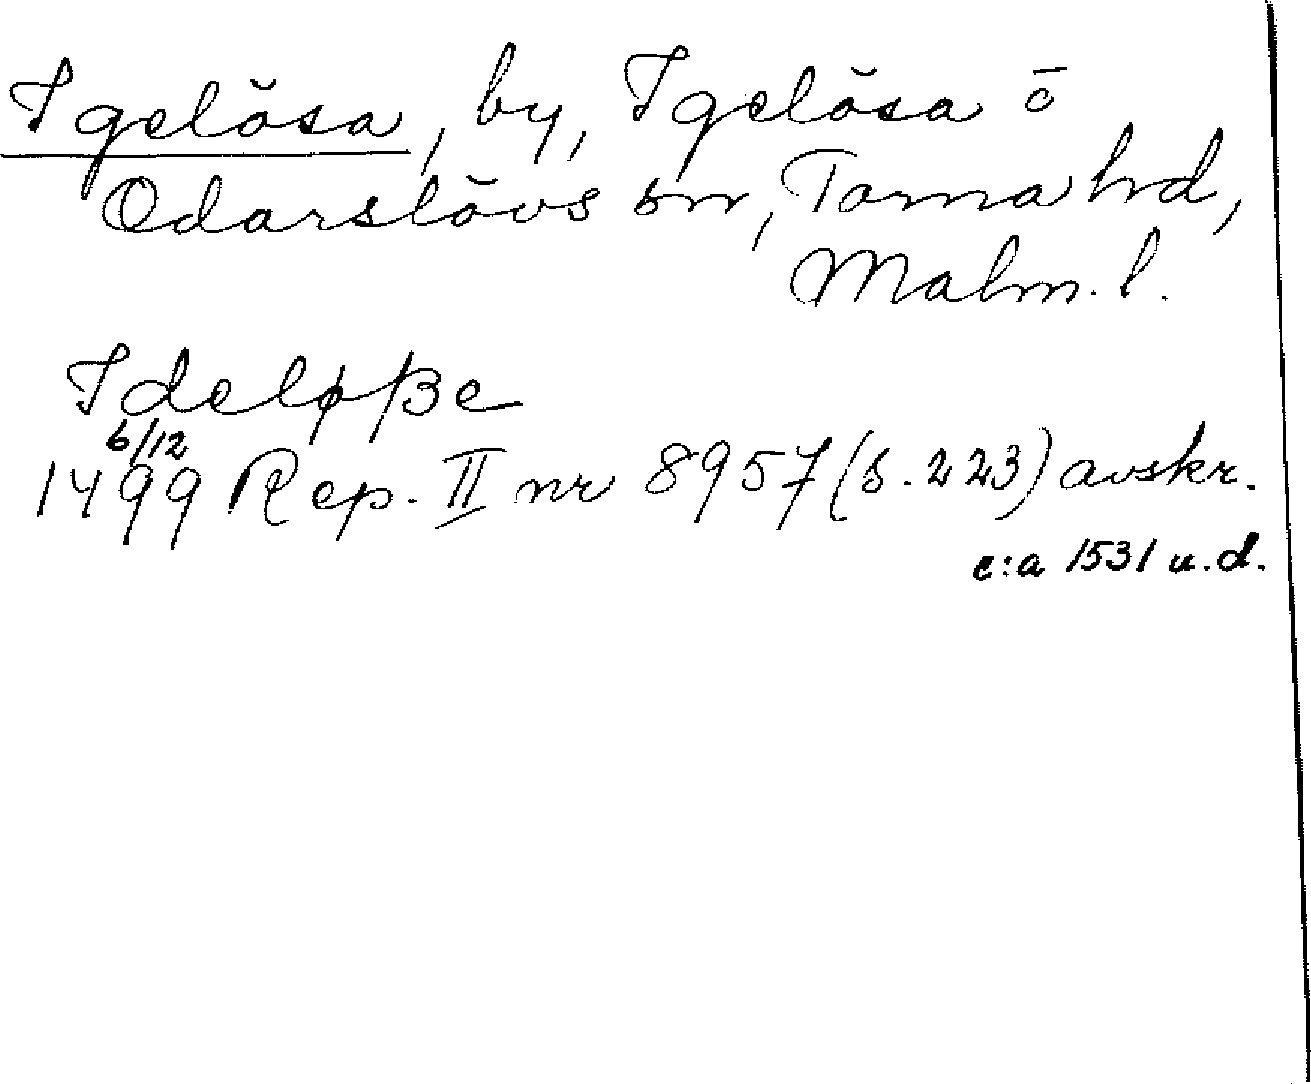 Igelösa, by, Igelösa o
Odarslövs snr, Torna hrd,
Malm. l.
Ideløsze
6/12
1499 Rep. II nr 8957 (s. 223) avskr.
c:a 1531 u.d.